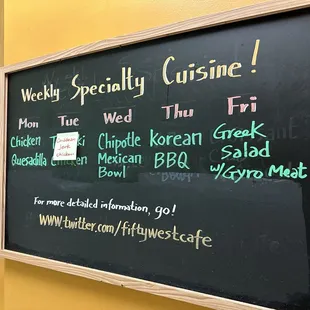 Weekly Specialty Cuisine!
Mon Tue Wed Thu Fri
Chicken Quesadilla
Chicken
Chipotle Mexican Bowl
Korean BBQ
Greek Salad w/Gyro Meat
For more detailed information, go!
www.twitter.com/fiftywestcafe